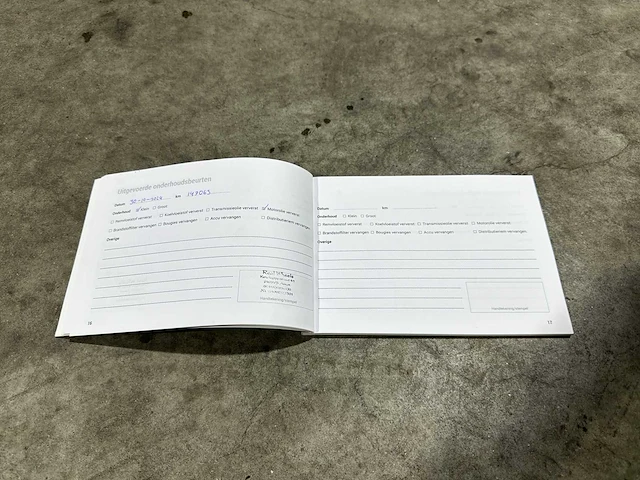 Uitgevoerde onderhoudsbeurten
Datum km
Onderhoud Klein Groot
Remvloeistof ververst Koelvloeistof ververst Transmissieolie ververst Motorolie ververst
Brandstoffilter vervangen Bougies vervangen Accu vervangen Distributieriem vervangen
Overige
Handtekening/stempel
16
Datum km
Onderhoud Klein Groot
Remvloeistof ververst Koelvloeistof ververst Transmissieolie ververst Motorolie ververst
Brandstoffilter vervangen Bougies vervangen Accu vervangen Distributieriem vervangen
Overige
Handtekening/stempel
17